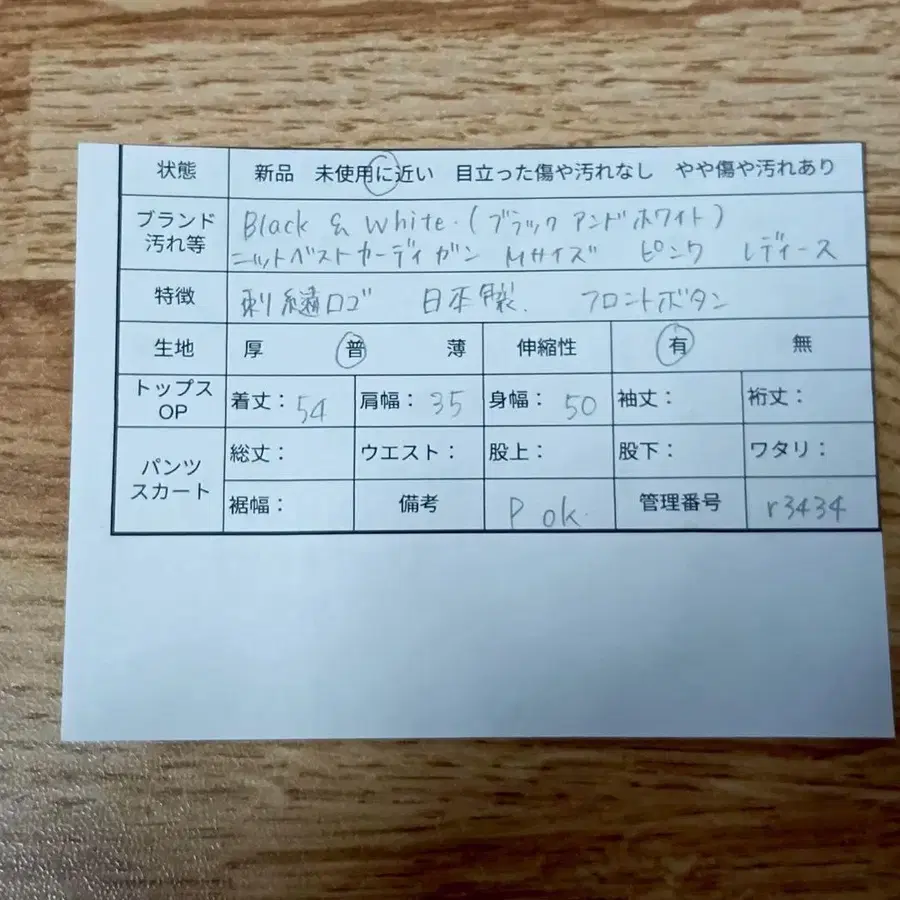 状態 新品 未使用に近い 目立った傷や汚れなし やや傷や汚れあり
ブランド
汚れ等
Black & White.(ブラックアンドホワイト)
ニットベストカーディガン Mサイズ ピンク レディース
特徴 刺繍ロゴ 日本製. フロントボタン
生地 厚 普 薄 伸縮性 有 無
トップス
OP
着丈: 54 肩幅: 35 身幅: 50 袖丈: 裄丈:
パンツ
スカート
総丈: ウエスト: 股上: 股下: ワタリ:
裾幅: 備考 P ok. 管理番号 r3434